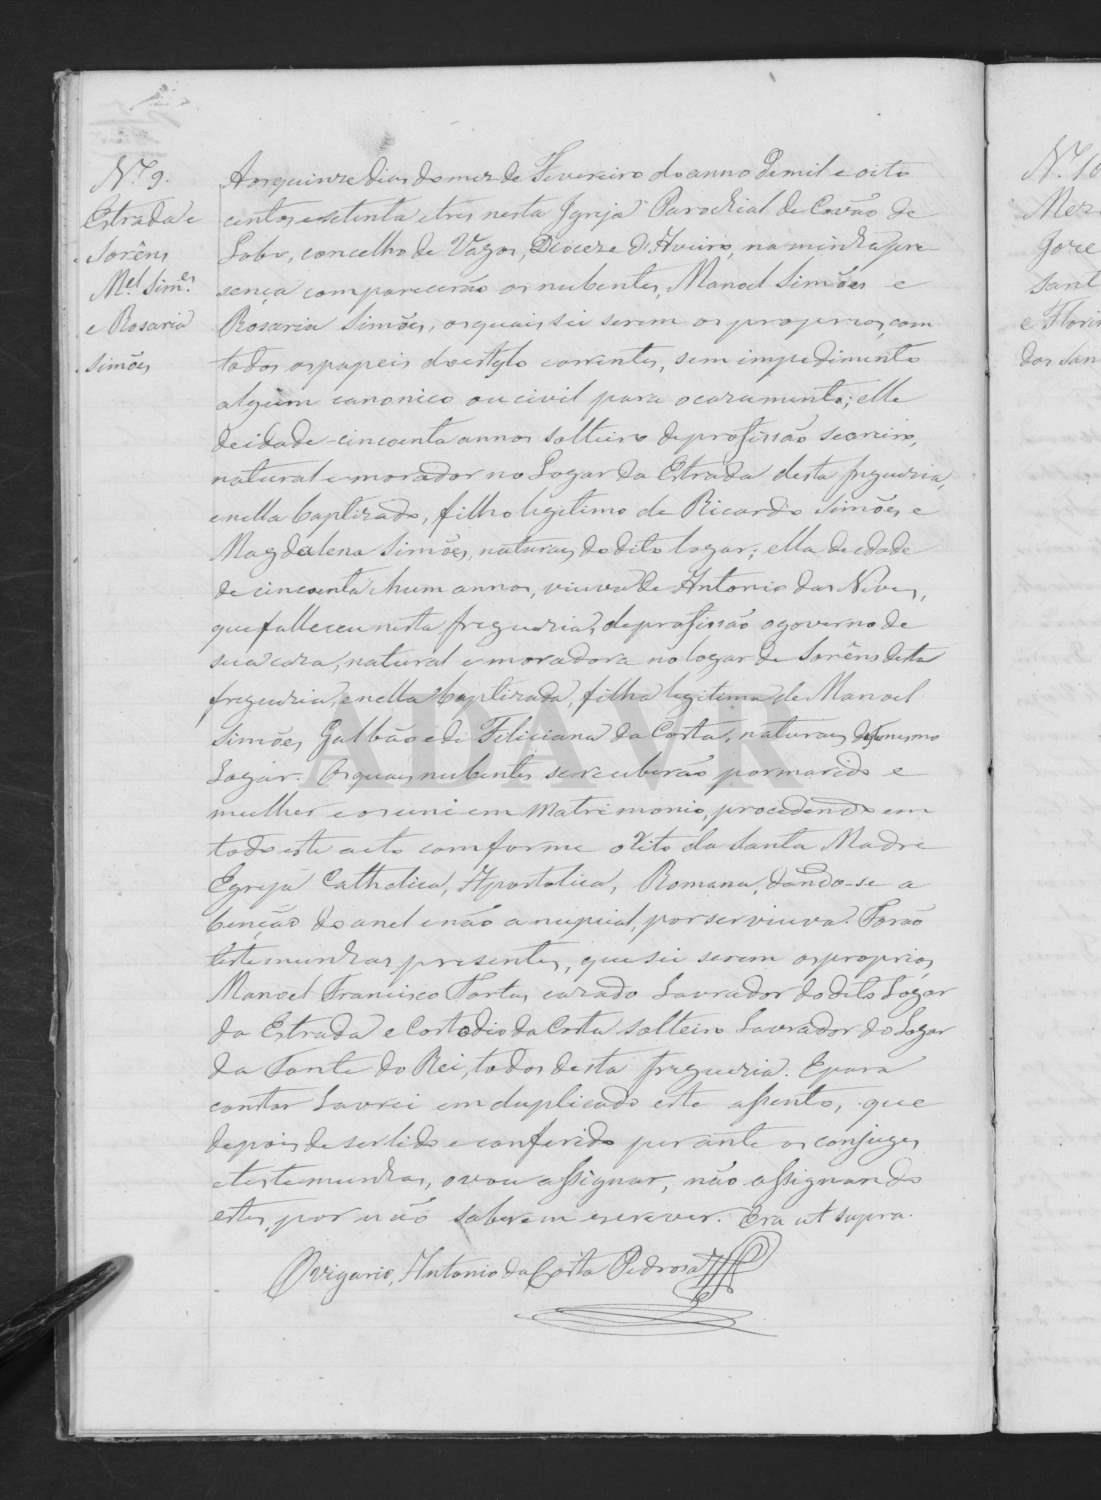 N.º 9.
Estrada e
Sorêns
M.el Sim.es
e Rosaria
Simões
Aos quinze dias do mez de Fevereiro do anno de mil e oito
centos e setenta e tres nesta Igreja Parochial de Covão de
Lobo, concelho de Vagos, Diocese d'Aveiro, na minha pre
sença comparecerão os nubentes, Manoel Simões e
Rosaria Simões, os quais sei serem os proprios, com
todos os papeis do estylo correntes, sem impedimento
algum canonico ou civil para o cazamento; elle
de idade cincoenta annos solteiro de profissão seareiro,
natural e morador no Logar da Estrada desta freguezia,
e nella baptizado, filho legitimo de Ricardo Simões e
Magdalena Simões, naturaes do dito logar; ella de idade
de cincoenta e hum annos, viuva de Antonio das Neves,
que falleceu nesta freguezia, de profissão o governo de
sua caza, natural e moradora no logar de Sorêns desta
freguezia, e nella baptizada, filha legitima de Manoel
Simões Galbão e de Feliciana da Costa, naturaes do mesmo
Logar. Os quaes nubentes se receberão por marido e
mulher e os uni em Matrimonio, procedendo em
todo este acto comforme o Rito da Santa Madre
Egreja Catholica, Apostolica, Romana, dando-se a
benção do anel e não a nupcial, por ser viuva. Forão
testemunhas prezentes, que sei serem os proprios,
Manoel Francisco Fortes, cazado Lavrador do dito Logar
da Estrada e Costodio da Costa solteiro Lavrador do Logar
da Fonte do Rei, todos desta freguezia. E para
constar Lavrei em duplicado este assento, que
depois de ser lido e conferido perante os conjuges
e testemunhas, o vou assignar, não assignando
estes, por não saberem escrever. Era ut supra.
O vigario, Antonio da Costa Pedrosa
ADAVR
N.º 10
e Florin
dos San